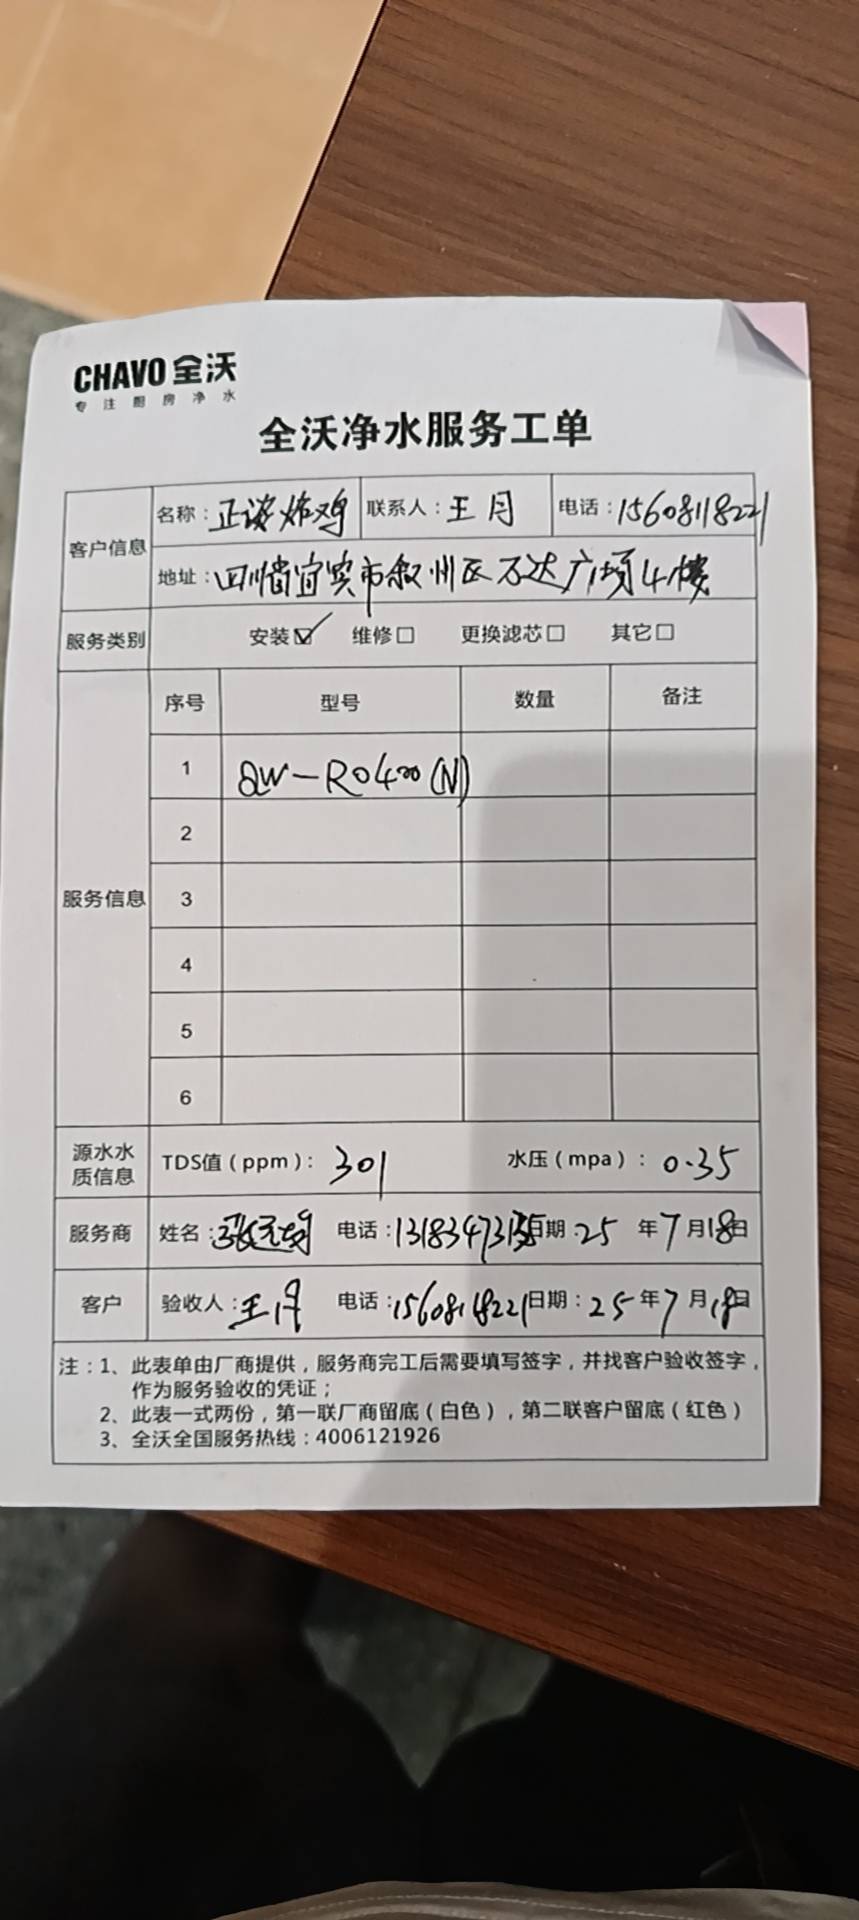 CHAVO 全沃
专注厨房净水
全沃净水服务工单
客户信息 名称：正诶炸鸡 联系人：王月 电话：15608118221
地址：四川省宜宾市叙州区万达广场4楼
服务类别 安装☑ 维修□ 更换滤芯□ 其它□
服务信息 序号 型号 数量 备注
1 QW-RO400(N)
2
3
4
5
6
源水水质信息 TDS值（ppm）：301 水压（mpa）：0.35
服务商 姓名：张 电话：131834731 日期：25年7月18日
客户 验收人：王月 电话：15608118221 日期：25年7月18日
注：1、此表单由厂商提供，服务商完工后需要填写签字，并找客户验收签字，
作为服务验收的凭证；
2、此表一式两份，第一联厂商留底（白色），第二联客户留底（红色）
3、全沃全国服务热线：4006121926